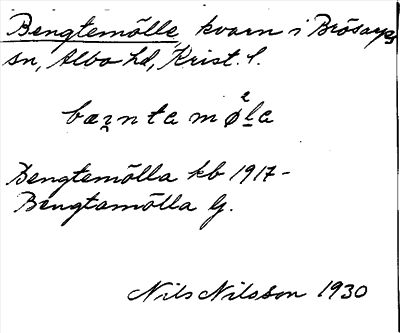 Bengtemölle, kvarn i Brösarps
sn, Albo hd, Krist. l.
bæʒnta møla
Bengtemölla kb 1917-
Bengtamölla G.
Nils Nilsson 1930